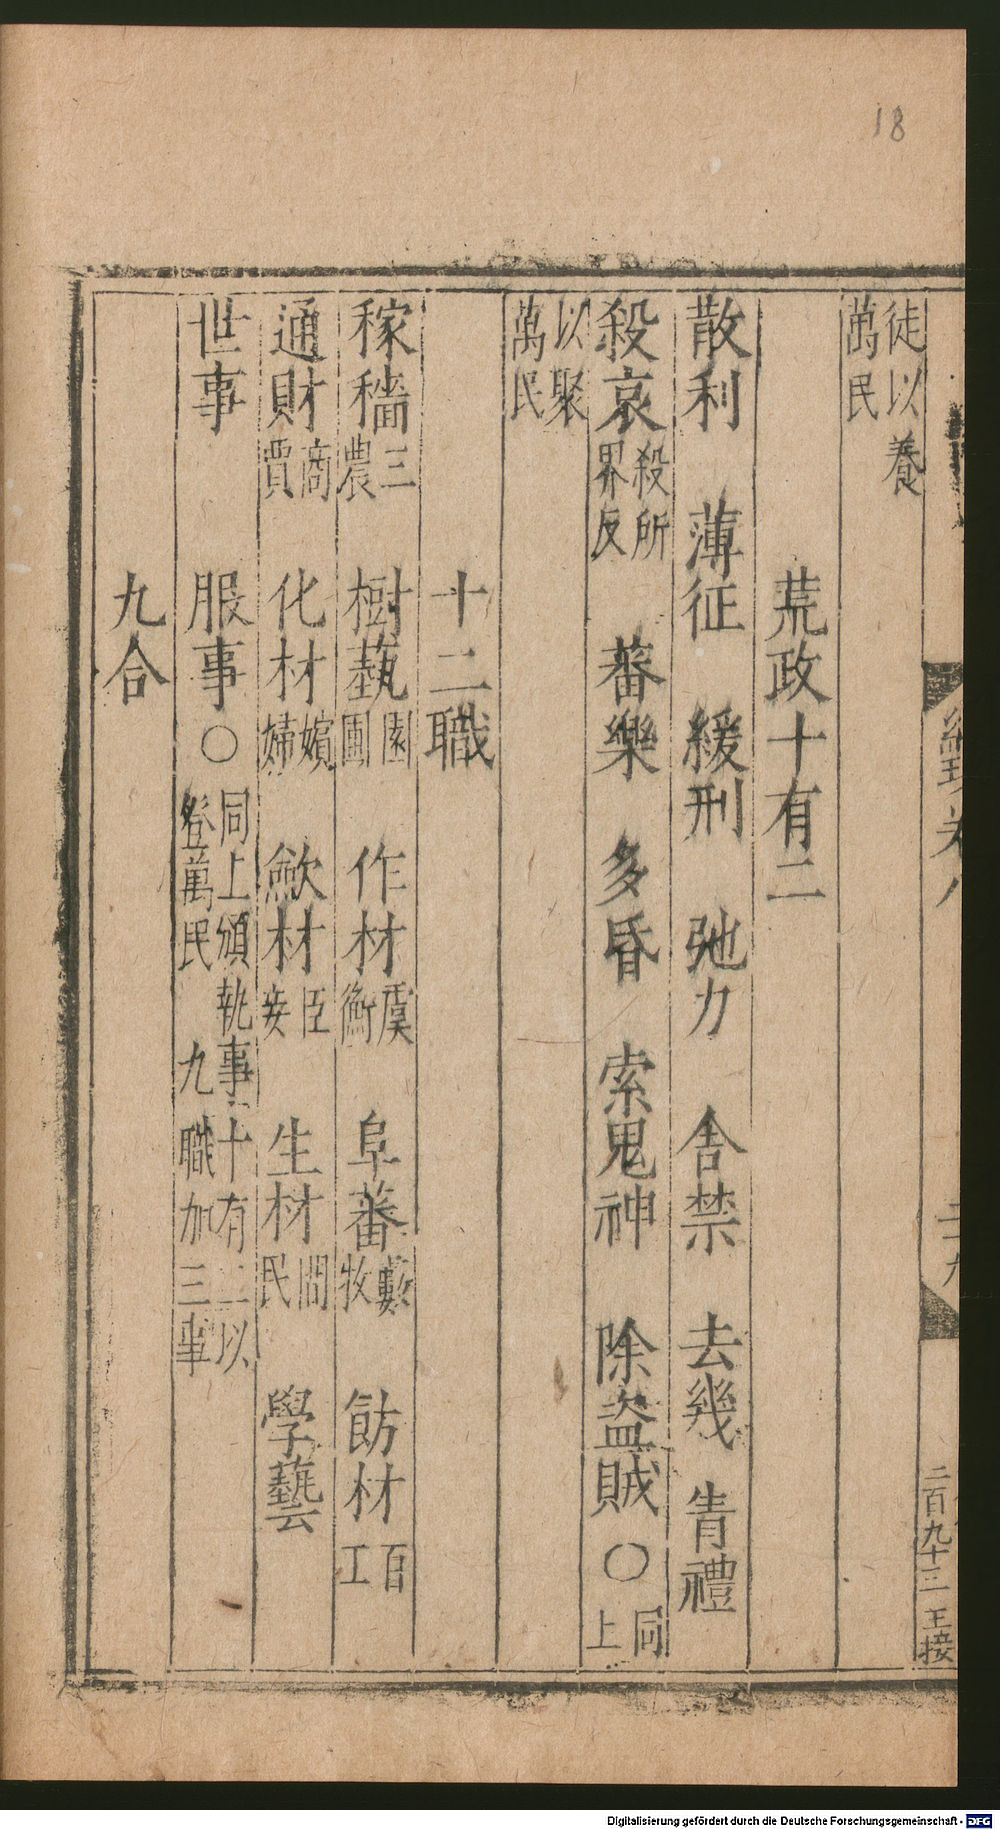 18
徒以養
萬民
荒政十有二
散利 薄征 緩刑 弛力 舎禁 去幾 眚禮
殺哀殺所界反 蕃樂 多昏 索鬼神 除盜賊〇同上
以聚
萬民
十二職
稼穡三農 樹蓺園圃 作材虞衡 阜蕃藪牧 飭材百工
通財商賈 化材嬪婦 歛材臣妾 生材間民 學藝
世事 服事〇同上頒執事十有二以登萬民 九職加三事
九合
二百九十三 王接
Digitalisierung gefördert durch die Deutsche Forschungsgemeinschaft - DFG